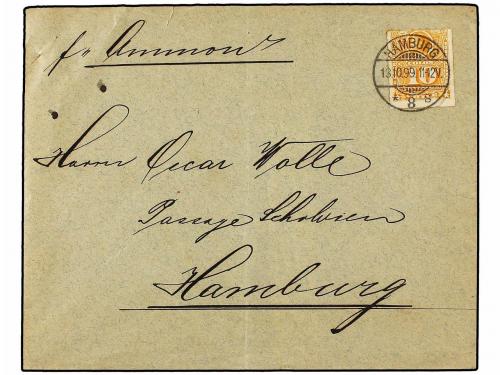 p. Ammon
HAMBURG
13.10.99.11-12V.
* 8 s
10
Herrn Oscar Wolle
Passage Scholvien
Hamburg